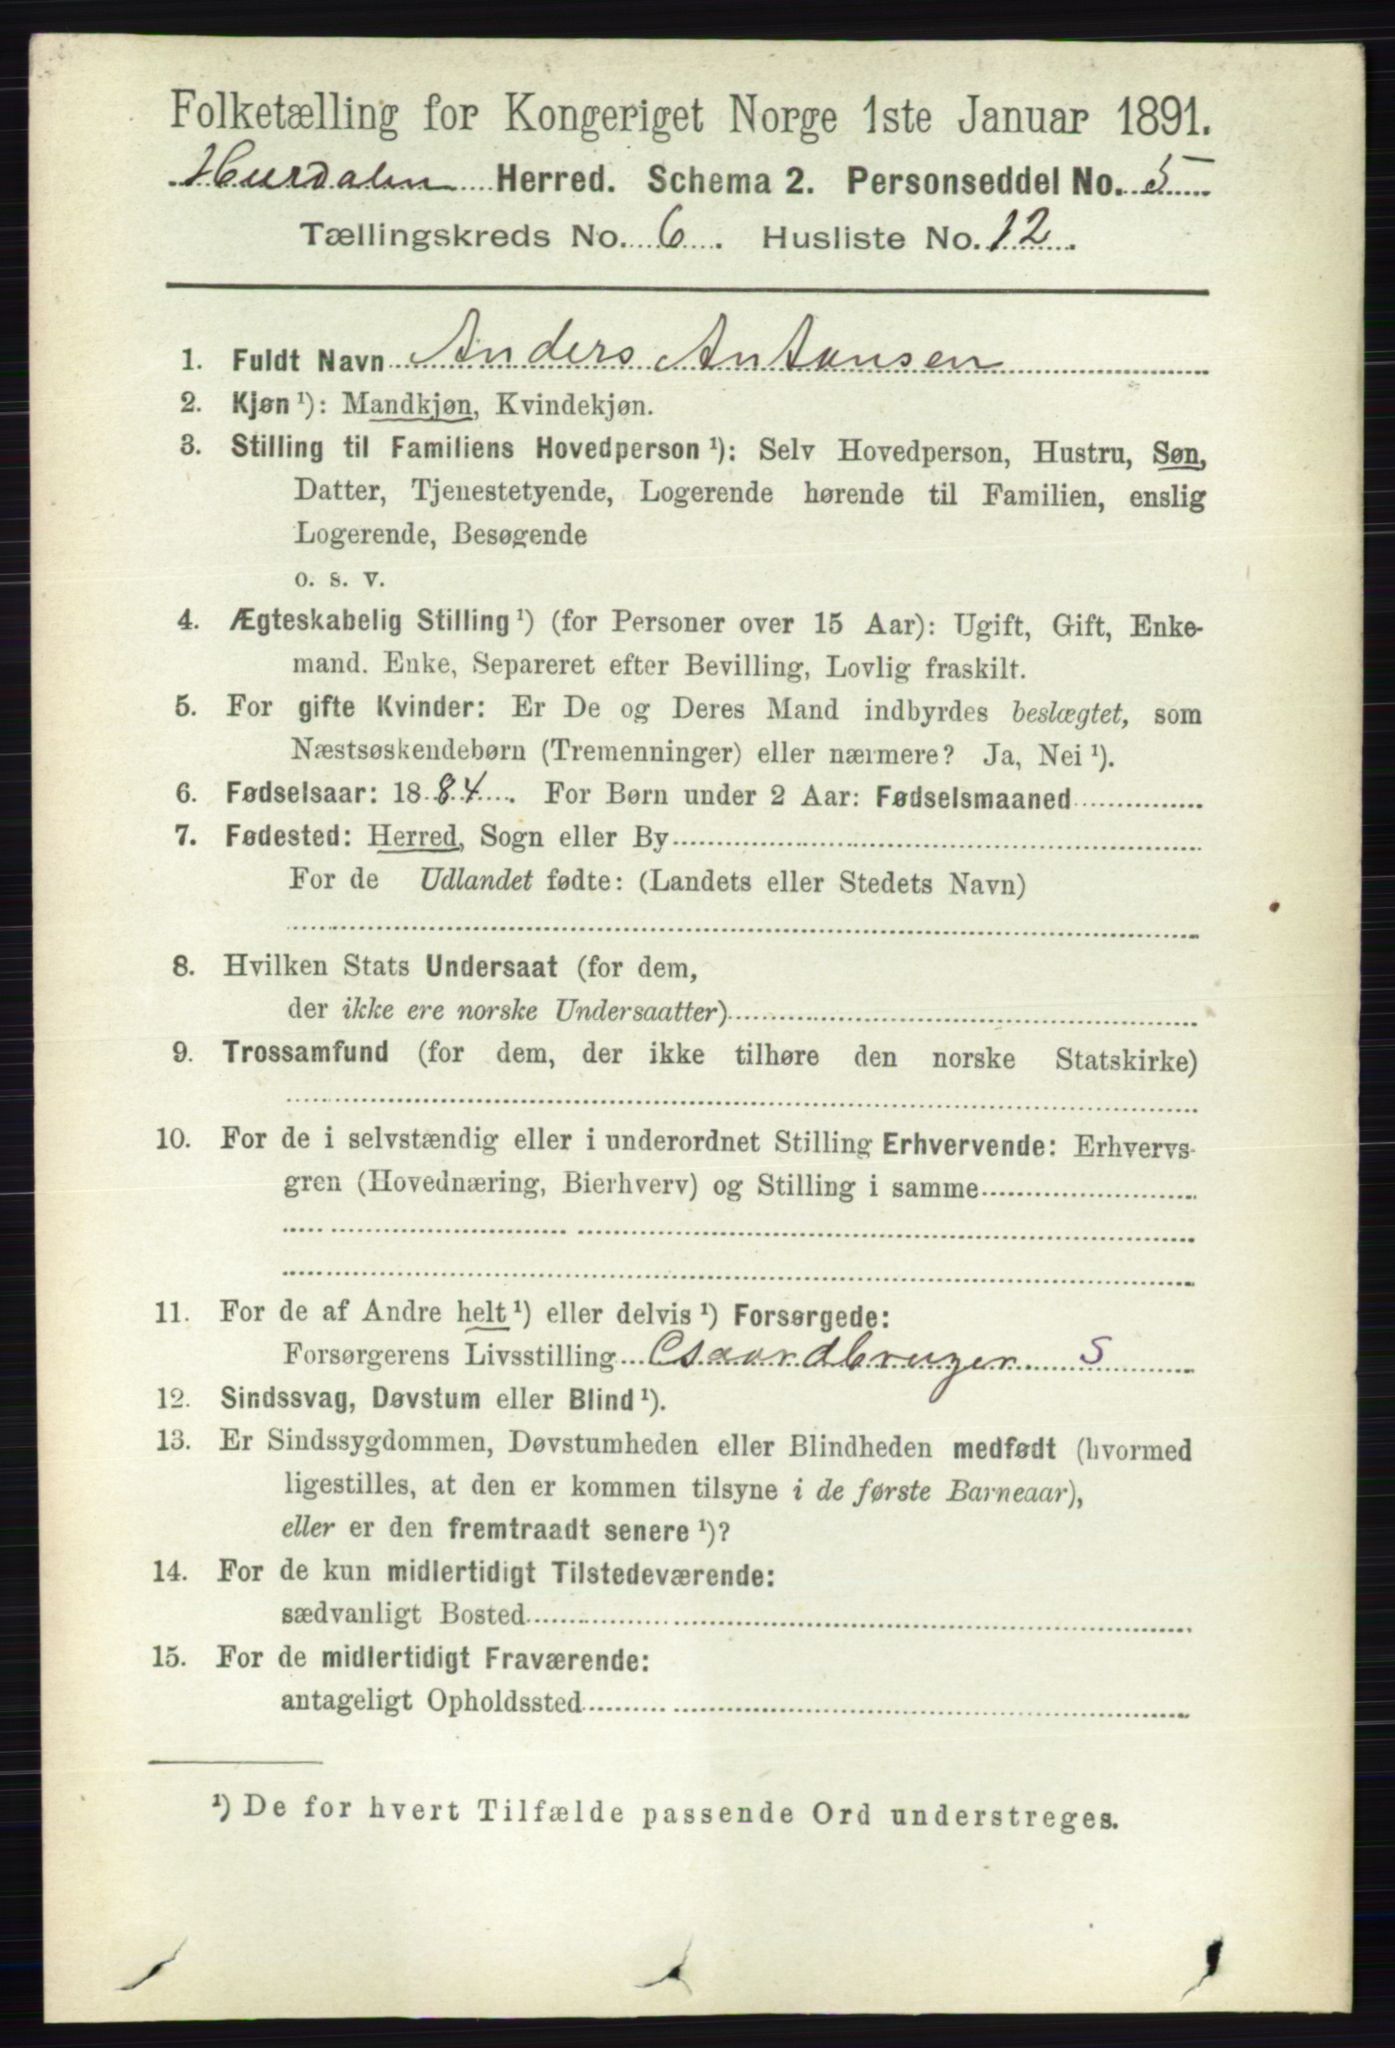 Folketælling for Kongeriget Norge 1ste Januar 1891.
Hurdalen Herred. Schema 2. Personseddel No. 5
Tællingskreds No. 6. Husliste No. 12.
1. Fuldt Navn Anders Antonsen
2. Kjøn ¹): Mandkjøn, Kvindekjøn.
3. Stilling til Familiens Hovedperson ¹): Selv Hovedperson, Hustru, Søn,
Datter, Tjenestetyende, Logerende hørende til Familien, enslig
Logerende, Besøgende
o. s. v.
4. Ægteskabelig Stilling ¹) (for Personer over 15 Aar): Ugift, Gift, Enke-
mand. Enke, Separeret efter Bevilling, Lovlig fraskilt.
5. For gifte Kvinder: Er De og Deres Mand indbyrdes beslægtet, som
Næstsøskendebørn (Tremenninger) eller nærmere? Ja, Nei ¹).
6. Fødselsaar: 1884. For Børn under 2 Aar: Fødselsmaaned
7. Fødested: Herred, Sogn eller By
For de Udlandet fødte: (Landets eller Stedets Navn)
8. Hvilken Stats Undersaat (for dem,
der ikke ere norske Undersaatter)
9. Trossamfund (for dem, der ikke tilhøre den norske Statskirke)
10. For de i selvstændig eller i underordnet Stilling Erhvervende: Erhvervs-
gren (Hovednæring, Bierhverv) og Stilling i samme
11. For de af Andre helt ¹) eller delvis ¹) Forsørgede:
Forsørgerens Livsstilling Gaardbruger S
12. Sindssvag, Døvstum eller Blind ¹).
13. Er Sindssygdommen, Døvstumheden eller Blindheden medfødt (hvormed
ligestilles, at den er kommen tilsyne i de første Barneaar),
eller er den fremtraadt senere ¹)?
14. For de kun midlertidigt Tilstedeværende:
sædvanligt Bosted
15. For de midlertidigt Fraværende:
antageligt Opholdssted
¹) De for hvert Tilfælde passende Ord understreges.